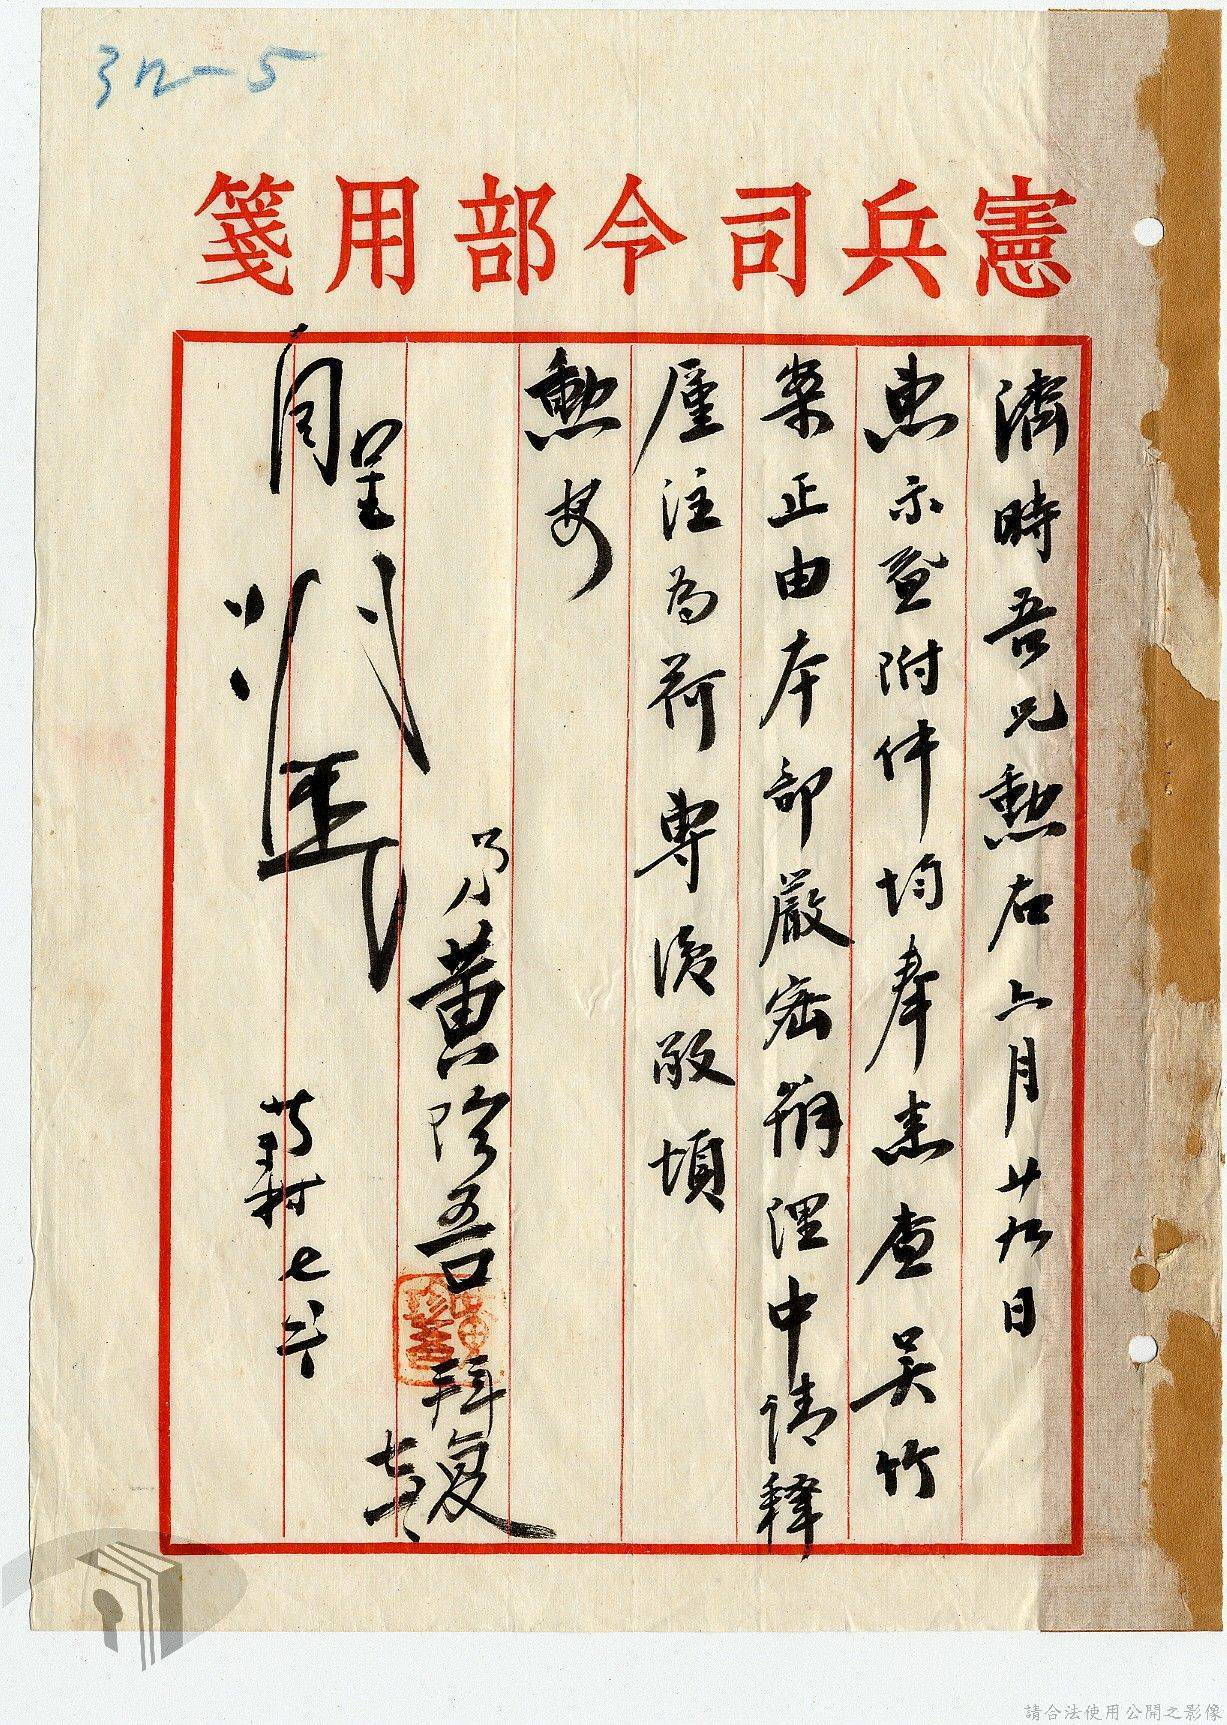 32-5
憲兵司令部用箋
濟時吾兄勳右六月廿九日
惠示暨附件均奉悉查吳竹
案正由本部嚴密辦理中請釋
廑注為荷專復敬頌
勳安
弟黃珍吾拜復
七
請合法使用公開之影像